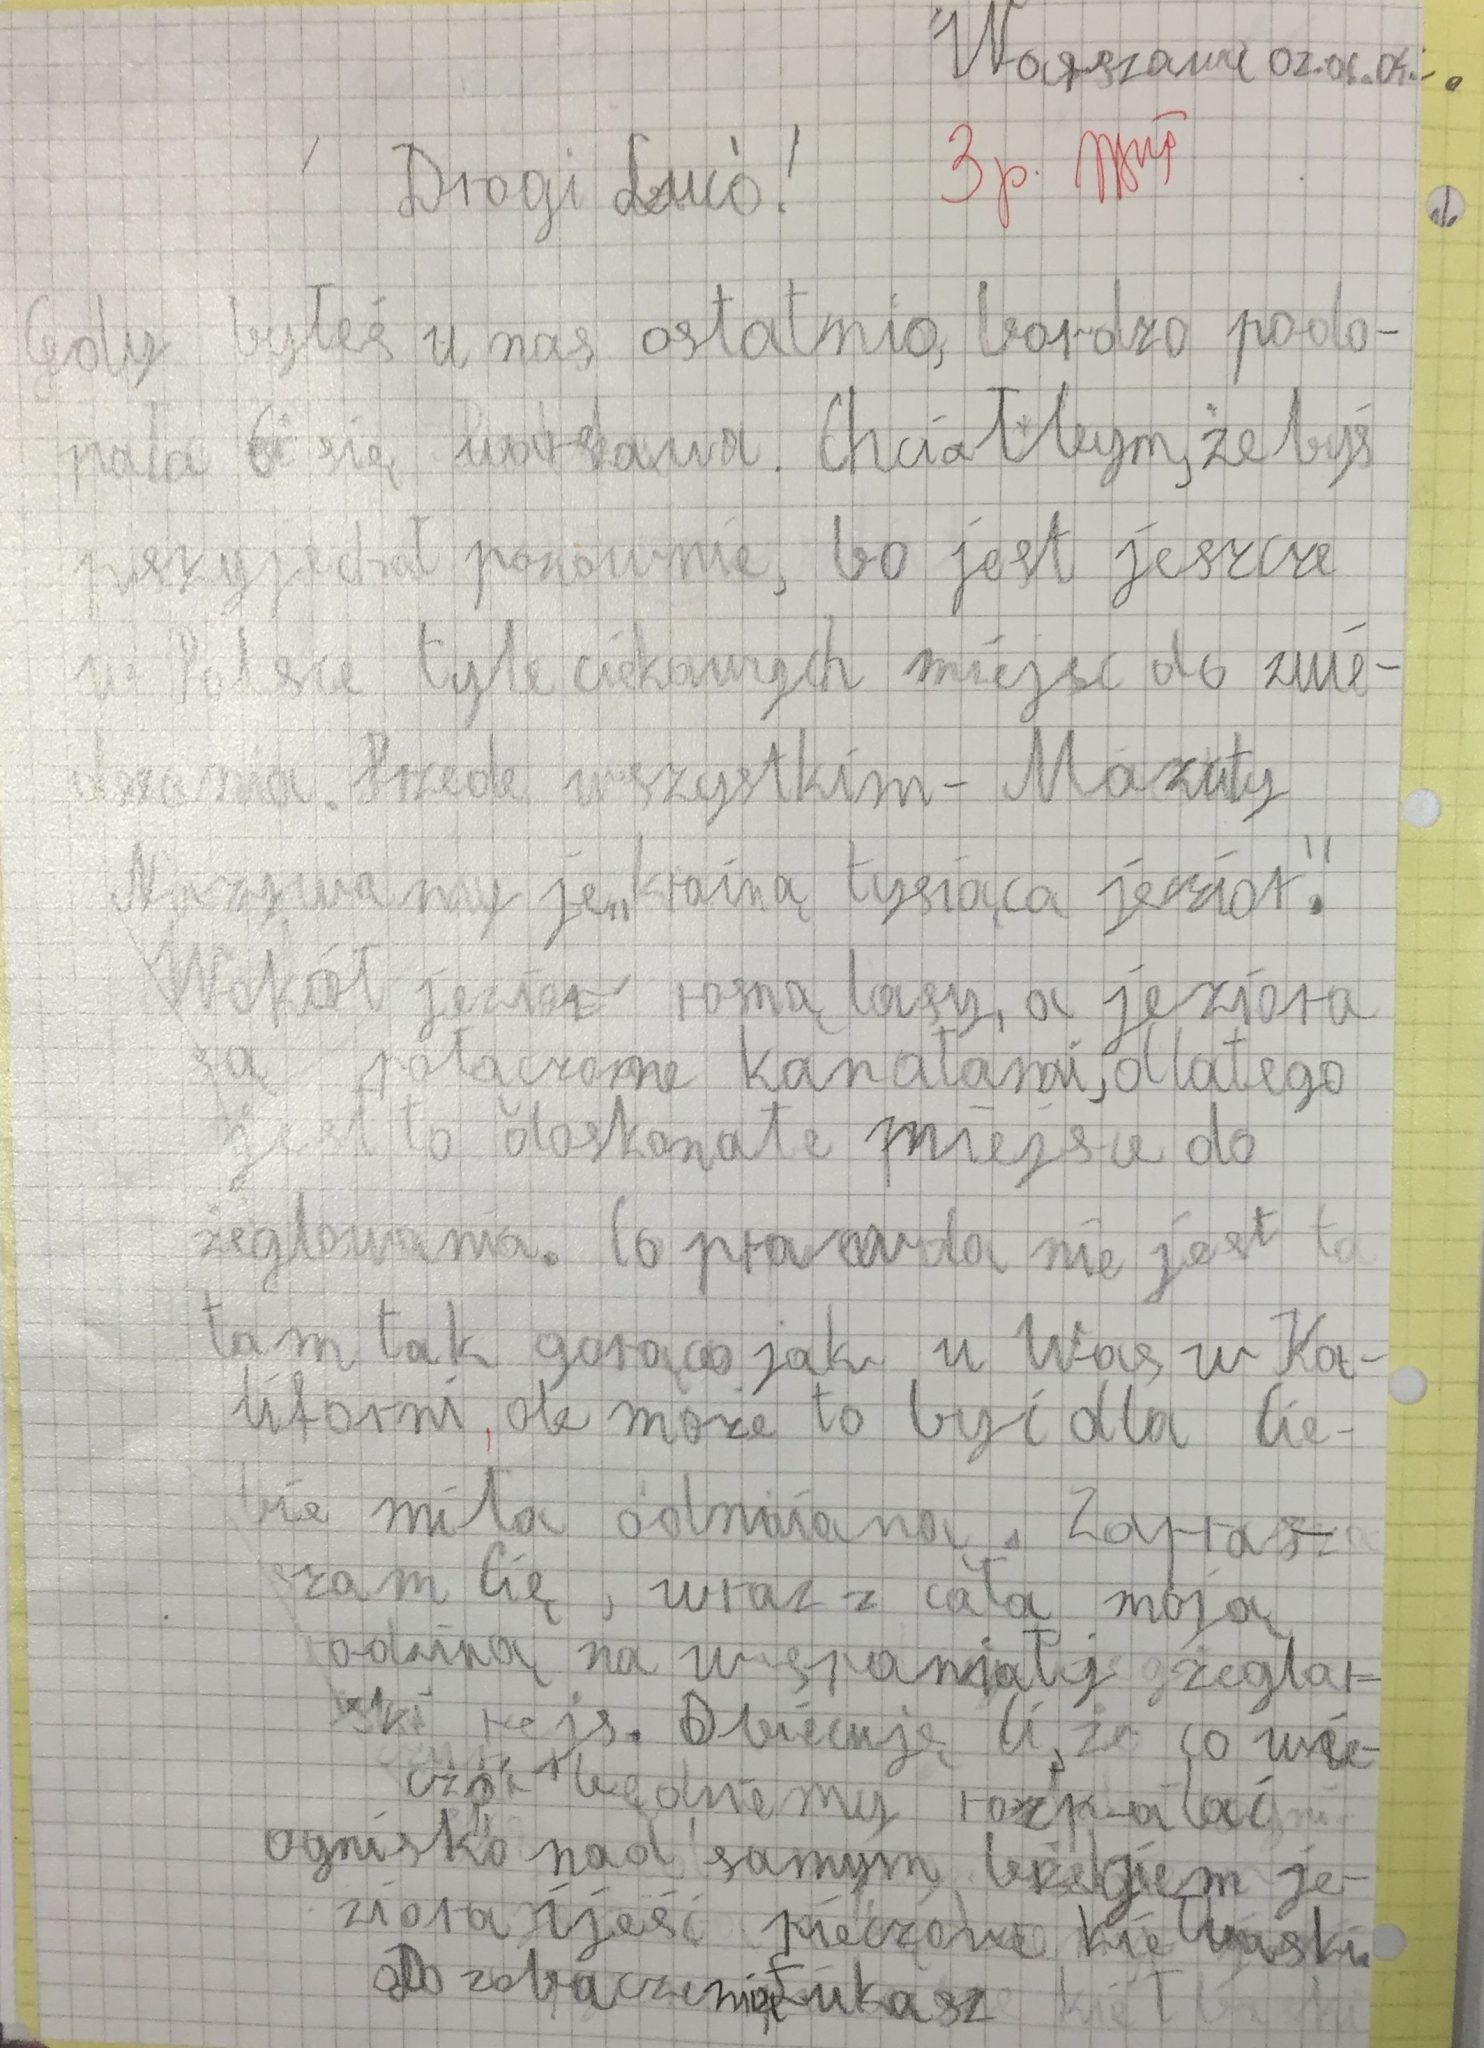 Warszawa 02.06.04.
Drogi Lucio!
3p.
Gdy byłeś u nas ostatnio, bardzo podo-
pała Ci się Warszawa. Chciałbym, żebyś
przyjechał ponownie, bo jest jeszcze
w Polsce tyle ciekawych miejsc do zwie-
dzania. Przede wszystkim - Mazury
Nazywamy je „krainą tysiąca jezior".
Wokół jezior rosną lasy, a jeziora
są połączone kanałami, dlatego
jest to doskonałe miejsce do
żeglowania. Co prawda nie jest ta
tam tak gorąco jak u Was w Ka-
liforni, ale może to być dla Cie-
bie miła odmiana. Zapra
szam Cię, wraz z całą moją
rodziną na wspaniały żeglar-
ski rejs. Obiecuję Ci, że co wie-
czór będziemy rozpalać
ognisko nad samym brzegiem je-
ziora i jeść pieczone kiełbaski.
Do zobaczenia Łukasz